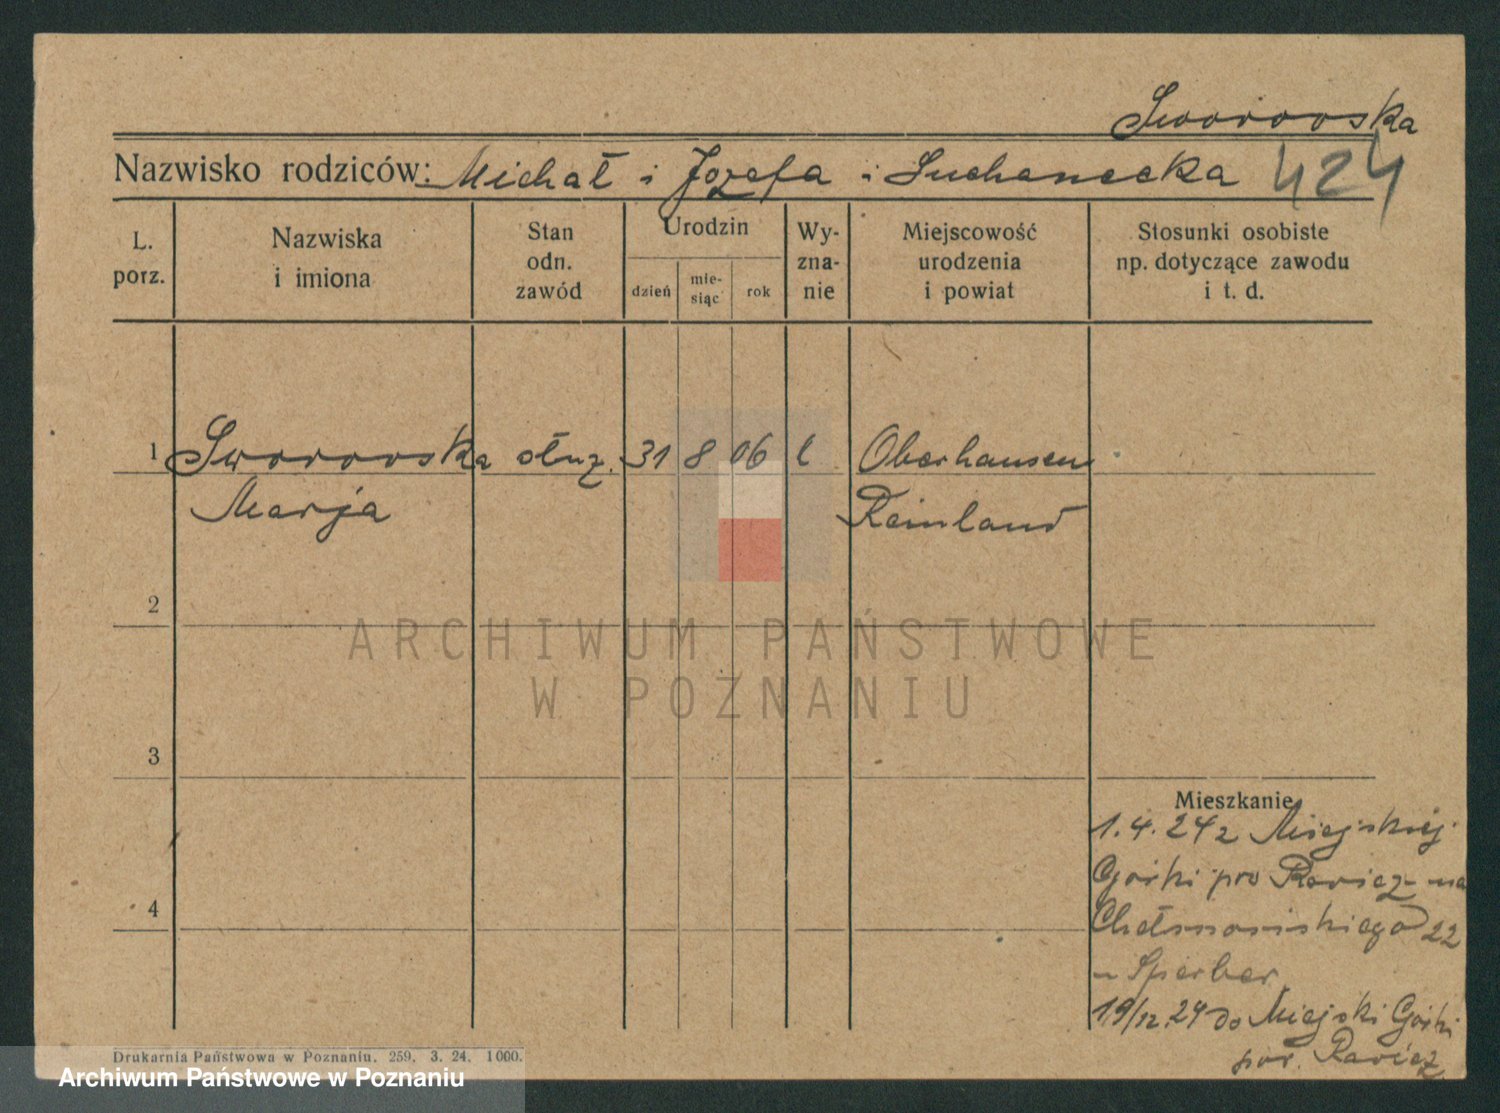 Sworowska
Nazwisko rodziców: Michał i Jozefa i Suchanecka 424
L. porz.
Nazwiska i imiona
Stan odn. zawód
Urodzin
dzień
mie-siąc
rok
Wy-zna-nie
Miejscowość urodzenia i powiat
Stosunki osobiste np. dotyczące zawodu i t. d.
1 Sworowska służ. 31 8 06 Oberhausen
Marja Reinland
2
ARCHIWUM PAŃSTWOWE
W POZNANIU
3
Mieszkanie
1.4.24 z Miejskiej
Gorki pow Rawicz na
4
Chełmońskiego 22
u Sperber
19/12.24 do Miejski Górki
pow. Rawicz
Drukarnia Państwowa w Poznaniu. 259. 3. 24. 1000.
Archiwum Państwowe w Poznaniu